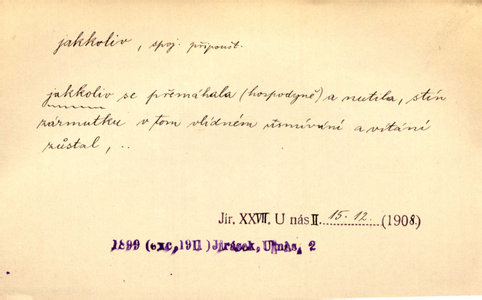 jakkoliv, spoj. připoušt.
jakkoliv se přemáhala (hospodyně) a nutila, stín
zármutku v tom vlídném usmívání a vítání
zůstal, ..
Jir. XXVII. U nás II. 15. 12. (1908.)
1899 (exc, 1911) Jirásek, U nás, 2